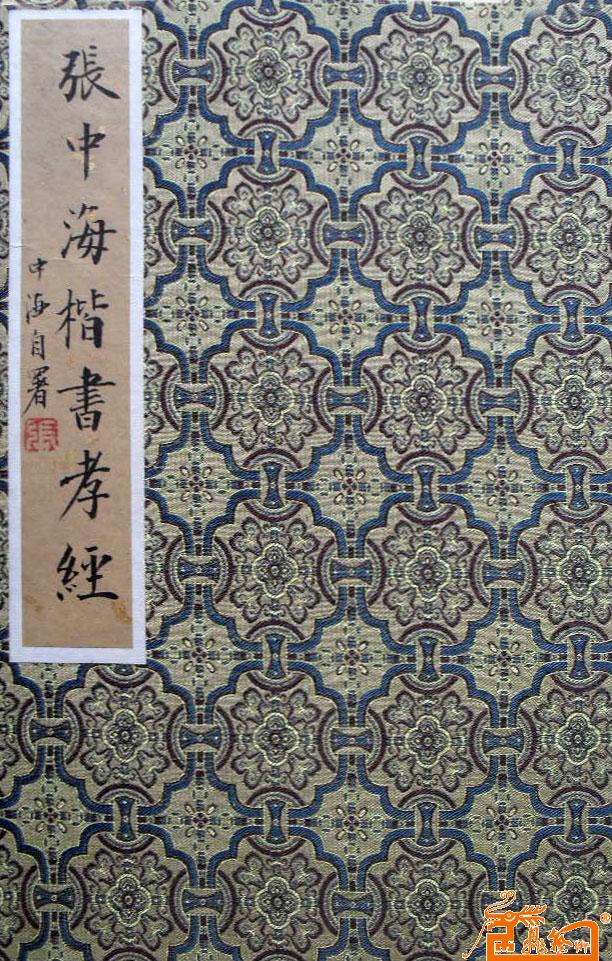 張中海楷書孝經
中海自署
張